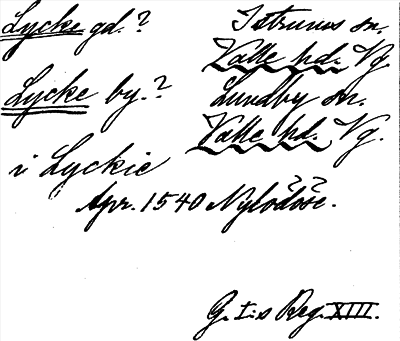 Lycke gd.? Istrums sn.
Valle hd. Vg.
Lycke by.? Lundby sn.
Valle hd. Vg.
i Lyckie
Apr. 1540 Nylödöse.
G. I:s Reg. XIII.